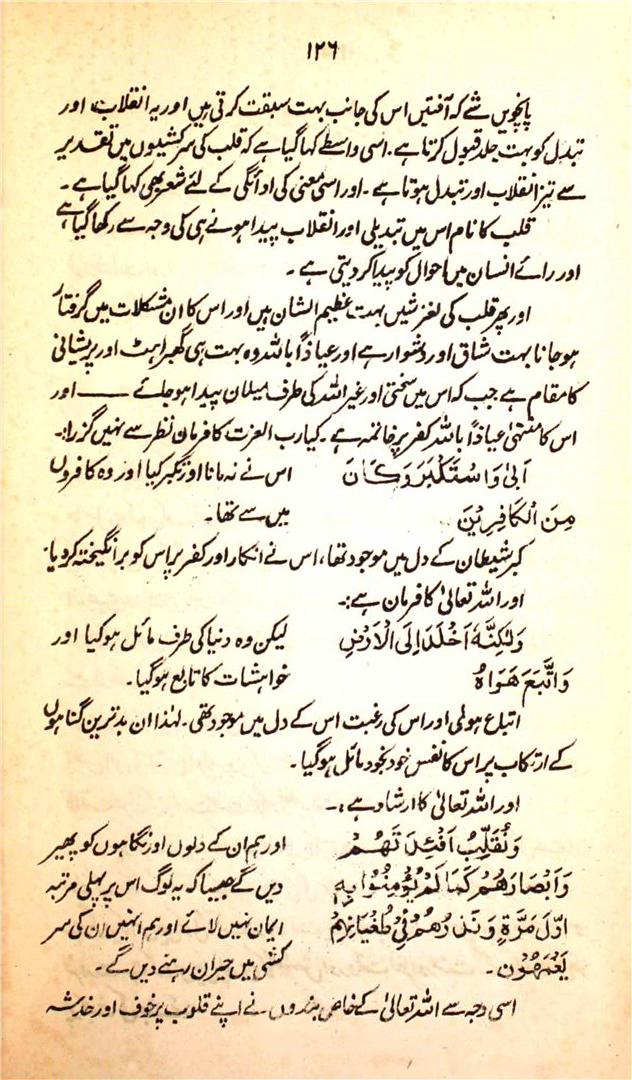 ۱۲۶
پانچویں شے کہ آفتیں اس کی جانب بہت سبقت کرتی ہیں اور یہ انقلاب اور
تبدل کو بہت جلد قبول کرتا ہے۔ اسی واسطے کہا گیا ہے کہ قلب کی سرکشیوں میں تقدیر
سے تیز انقلاب اور تبدل ہوتا ہے۔ اور اسی معنی کی ادائگی کے لئے شعر بھی کہا گیا ہے۔
قلب کا نام اس میں تبدیلی اور انقلاب پیدا ہونے ہی کی وجہ سے رکھا گیا ہے
اور رائے انسان میں احوال کو پیدا کر دیتی ہے۔
اور پھر قلب کی لغزشیں بہت عظیم الشان ہیں اور اس کا ان مشکلات میں گرفتار
ہو جانا بہت شاق اور دشوار ہے اور عیاذاً باللہ وہ بہت ہی گھبراہٹ اور پریشانی
کا مقام ہے جب کہ اس میں سختی اور غیر اللہ کی طرف میلان پیدا ہو جائے ـــــ اور
اس کا منتہیٰ عیاذاً باللہ کفر پر خاتمہ ہے۔ کیا رب العزت کا فرمان نظر سے نہیں گزرا:۔
اَبٰی وَاسْتَکْبَرَ وَکَانَ اس نے نہ مانا اور تکبر کیا اور وہ کافروں
مِنَ الْکَافِرِیْنَ میں سے تھا۔
کبر شیطان کے دل میں موجود تھا، اس نے انکار اور کفر پر اس کو برانگیختہ کر دیا۔
اور اللہ تعالیٰ کا فرمان ہے:۔
وَلٰکِنَّهٗ اَخْلَدَ اِلَی الْاَرْضِ لیکن وہ دنیا کی طرف مائل ہو گیا اور
وَاتَّبَعَ هَوَاهُ خواہشات کا تابع ہو گیا۔
اتباع ہوئی اور اس کی رغبت اس کے دل میں موجود تھی۔ لہٰذا ان بدترین گناہوں
کے ارتکاب پر اس کا نفس خود بخود مائل ہو گیا۔
اور اللہ تعالیٰ کا ارشاد ہے:۔
وَنُقَلِّبُ اَفْئِدَتَهُمْ اور ہم ان کے دلوں اور نگاہوں کو پھیر
وَاَبْصَارَهُمْ کَمَا لَمْ یُؤْمِنُوْا بِهٖ دیں گے جیسا کہ یہ لوگ اس پر پہلی مرتبہ
اَوَّلَ مَرَّةٍ وَنَذَرُهُمْ فِیْ طُغْیَانِهِمْ ایمان نہیں لائے اور ہم انہیں ان کی سر
یَعْمَهُوْنَ۔ کشی میں حیران رہنے دیں گے۔
اسی وجہ سے اللہ تعالیٰ کے خاص بندوں نے اپنے قلوب پر خوف اور خدشہ